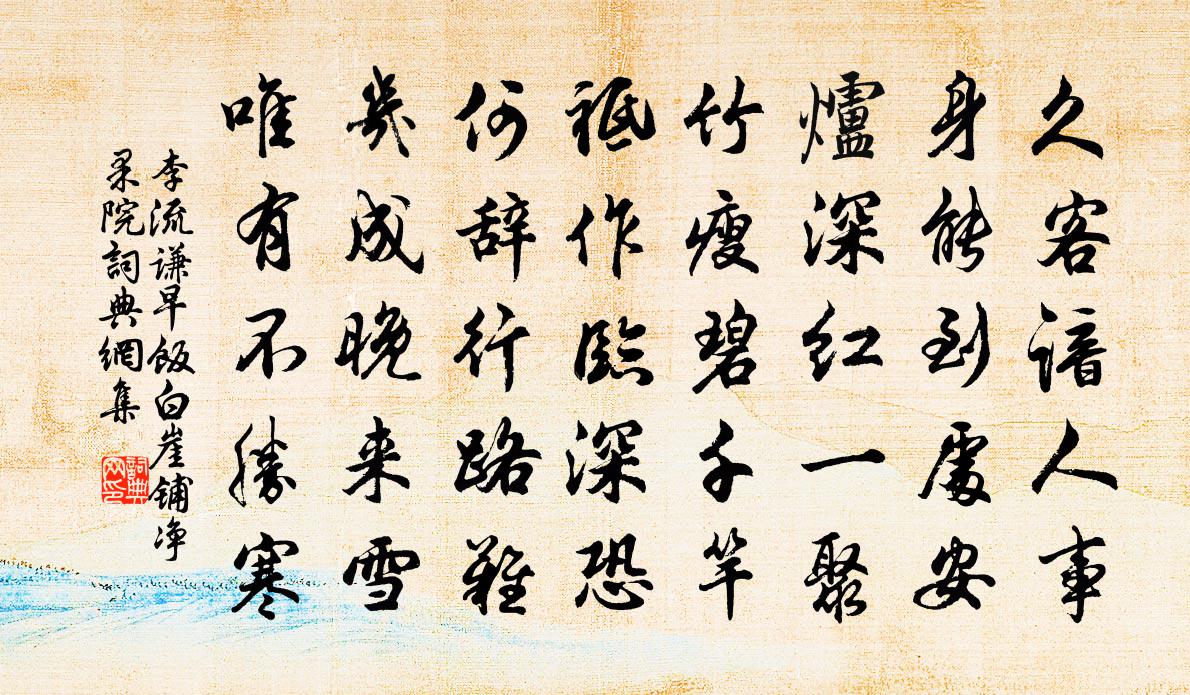 久客谙人事
身能到處安
爐深红一聚
竹瘦碧千竿
祗作臨深恐
何辞行路難
幾成晚来雪
唯有不勝寒
李流谦早飯白崖铺净
眾院詞典網集
詞典